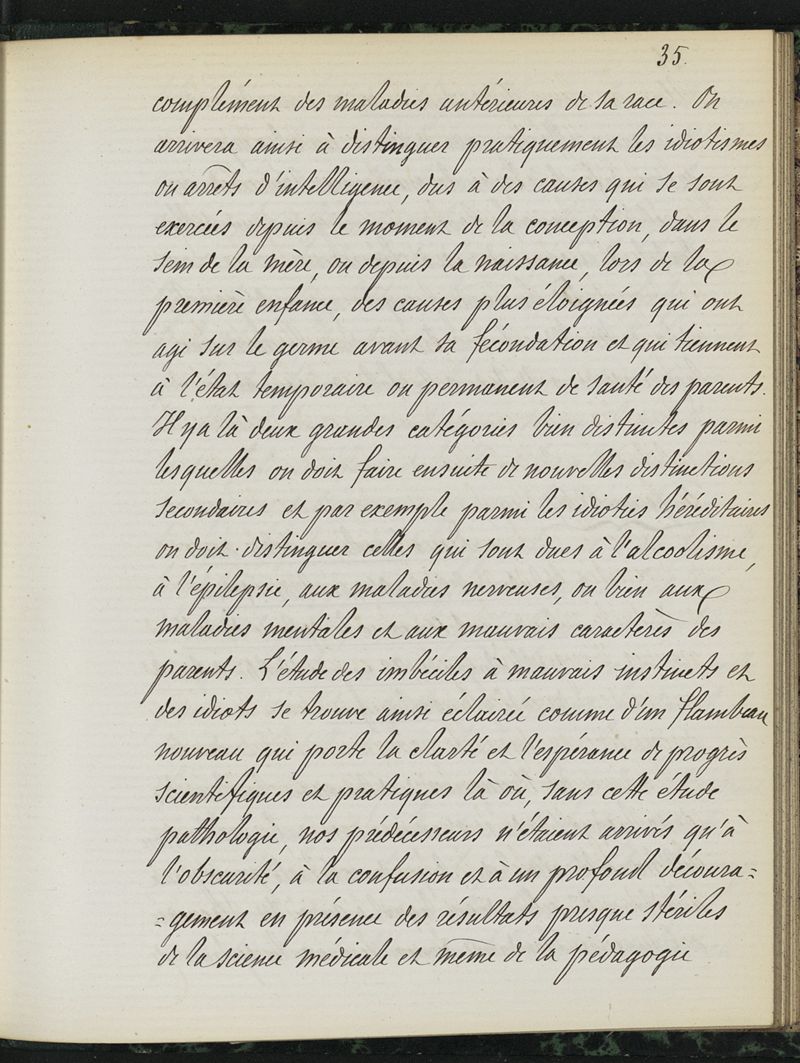 35.
complément des maladies antérieures de sa race. On
arrivera ainsi à distinguer pratiquement les idiotismes
ou arrêts d'intelligence, dus à des causes qui se sont
exercées depuis le moment de la conception, dans le
sein de la mère, ou depuis la naissance, lors de la
première enfance, des causes plus éloignées qui ont
agi sur le germe avant sa fécondation et qui tiennent
à l'état temporaire ou permanent de santé des parents.
Il y a là deux grandes catégories bien distinctes parmi
lesquelles on doit faire ensuite de nouvelles distinctions
secondaires et par exemple parmi les idioties héréditaires
on doit distinguer celles qui sont dues à l'alcoolisme,
à l'épilepsie, aux maladies nerveuses, ou bien aux
maladies mentales et aux mauvais caractères des
parents. L'étude des imbéciles à mauvais instincts et
des idiots se trouve ainsi éclairée comme d'un flambeau
nouveau qui porte la clarté et l'espérance de progrès
scientifiques et pratiques là où, sans cette étude
pathologie, nos prédécesseurs n'étaient arrivés qu'à
l'obscurité, à la confusion et à un profond découra=
=gement en présence des résultats presque stériles
de la science médicale et même de la pédagogie